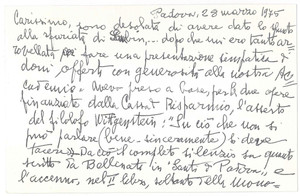 Padova, 28 marzo 1975
Carissimo, sono desolata di avere dato lo spunto
alla sfuriata di ... dopo che mi ero tanto ar
rovellata per fare una presentazione simpatica di
doni offerti con generosità alla nostra Ac
cademia. Avevo preso a base, per le due opere
finanziate dalla Cassa Risparmio, l'asserto
del filosofo Witgenstein: "Su ciò che non si
può parlare (bene - sinceramente) si deve
tacere". Da ciò il completo silenzio su questo
scritto la "Santo di Padova", e
l'accenno, nel II libro, soltanto delle